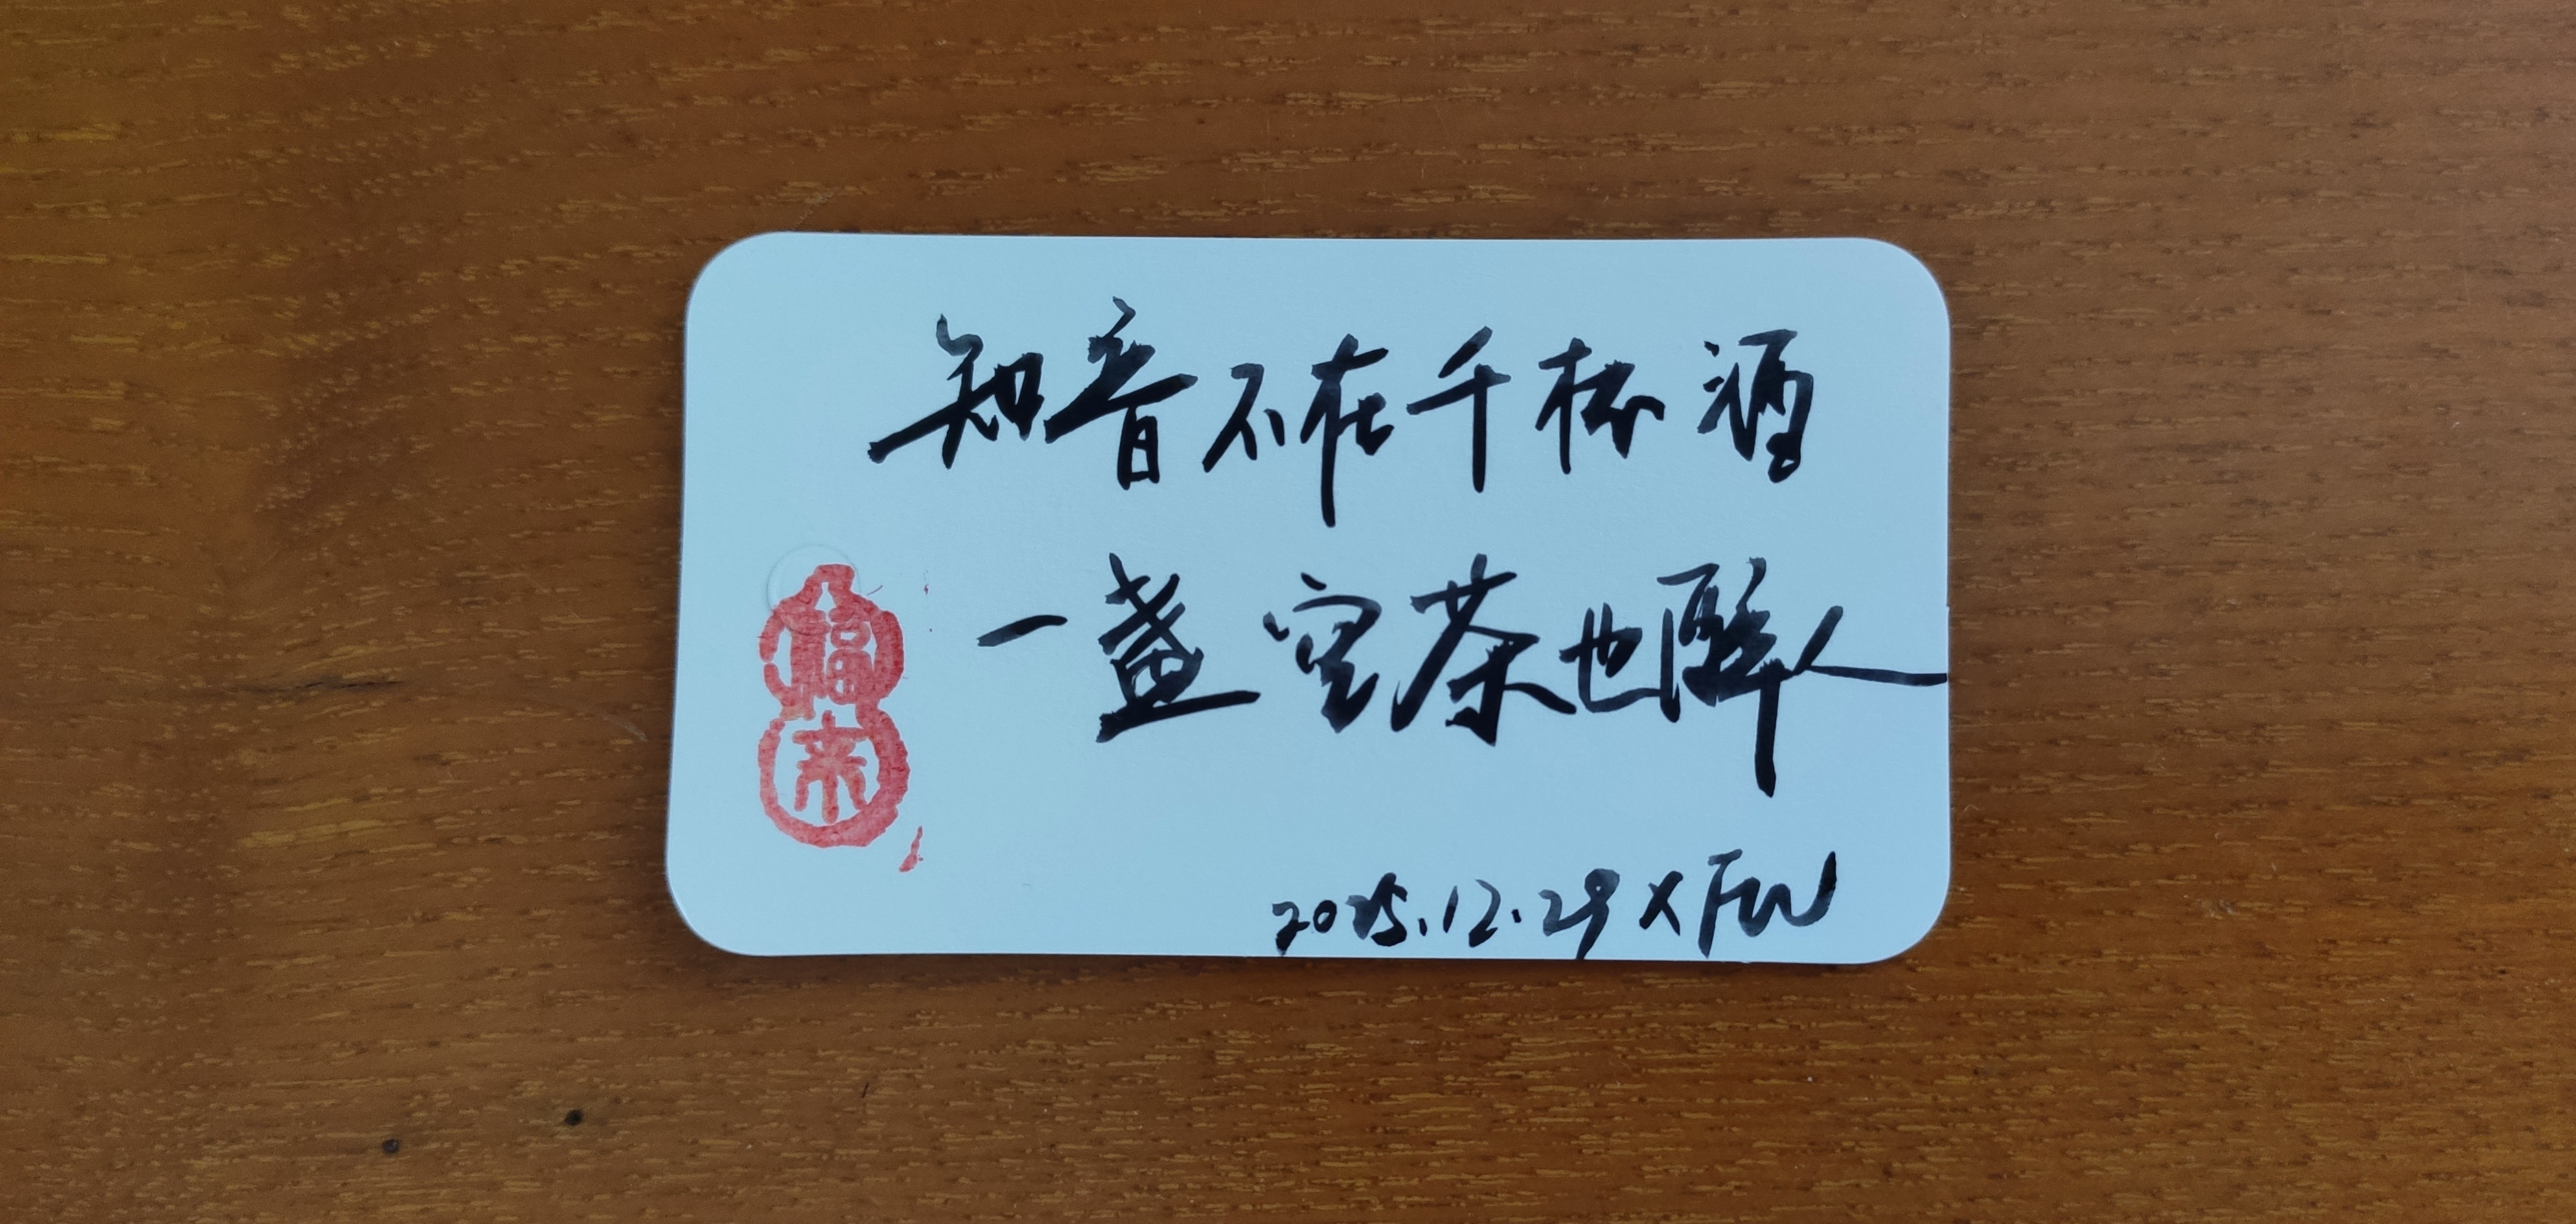 知音不在千杯酒
一盏空茶也醉人
2025.12.29 XFW
福
来